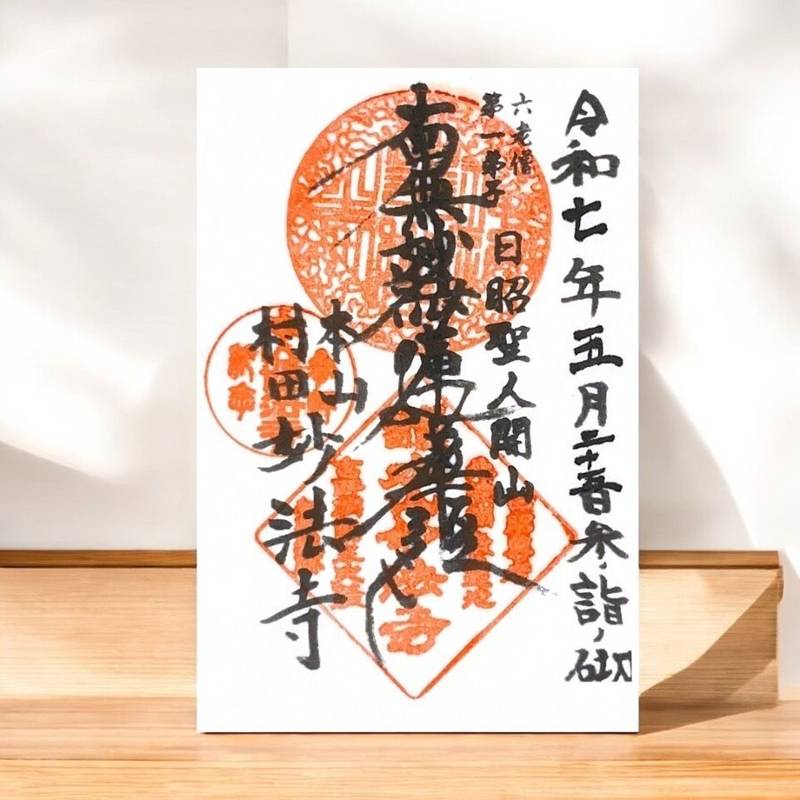 令和七年五月二十五日参詣ノ砌
六老僧
第一弟子
日昭聖人開山
南無妙法蓮華経
本山
村田妙法寺